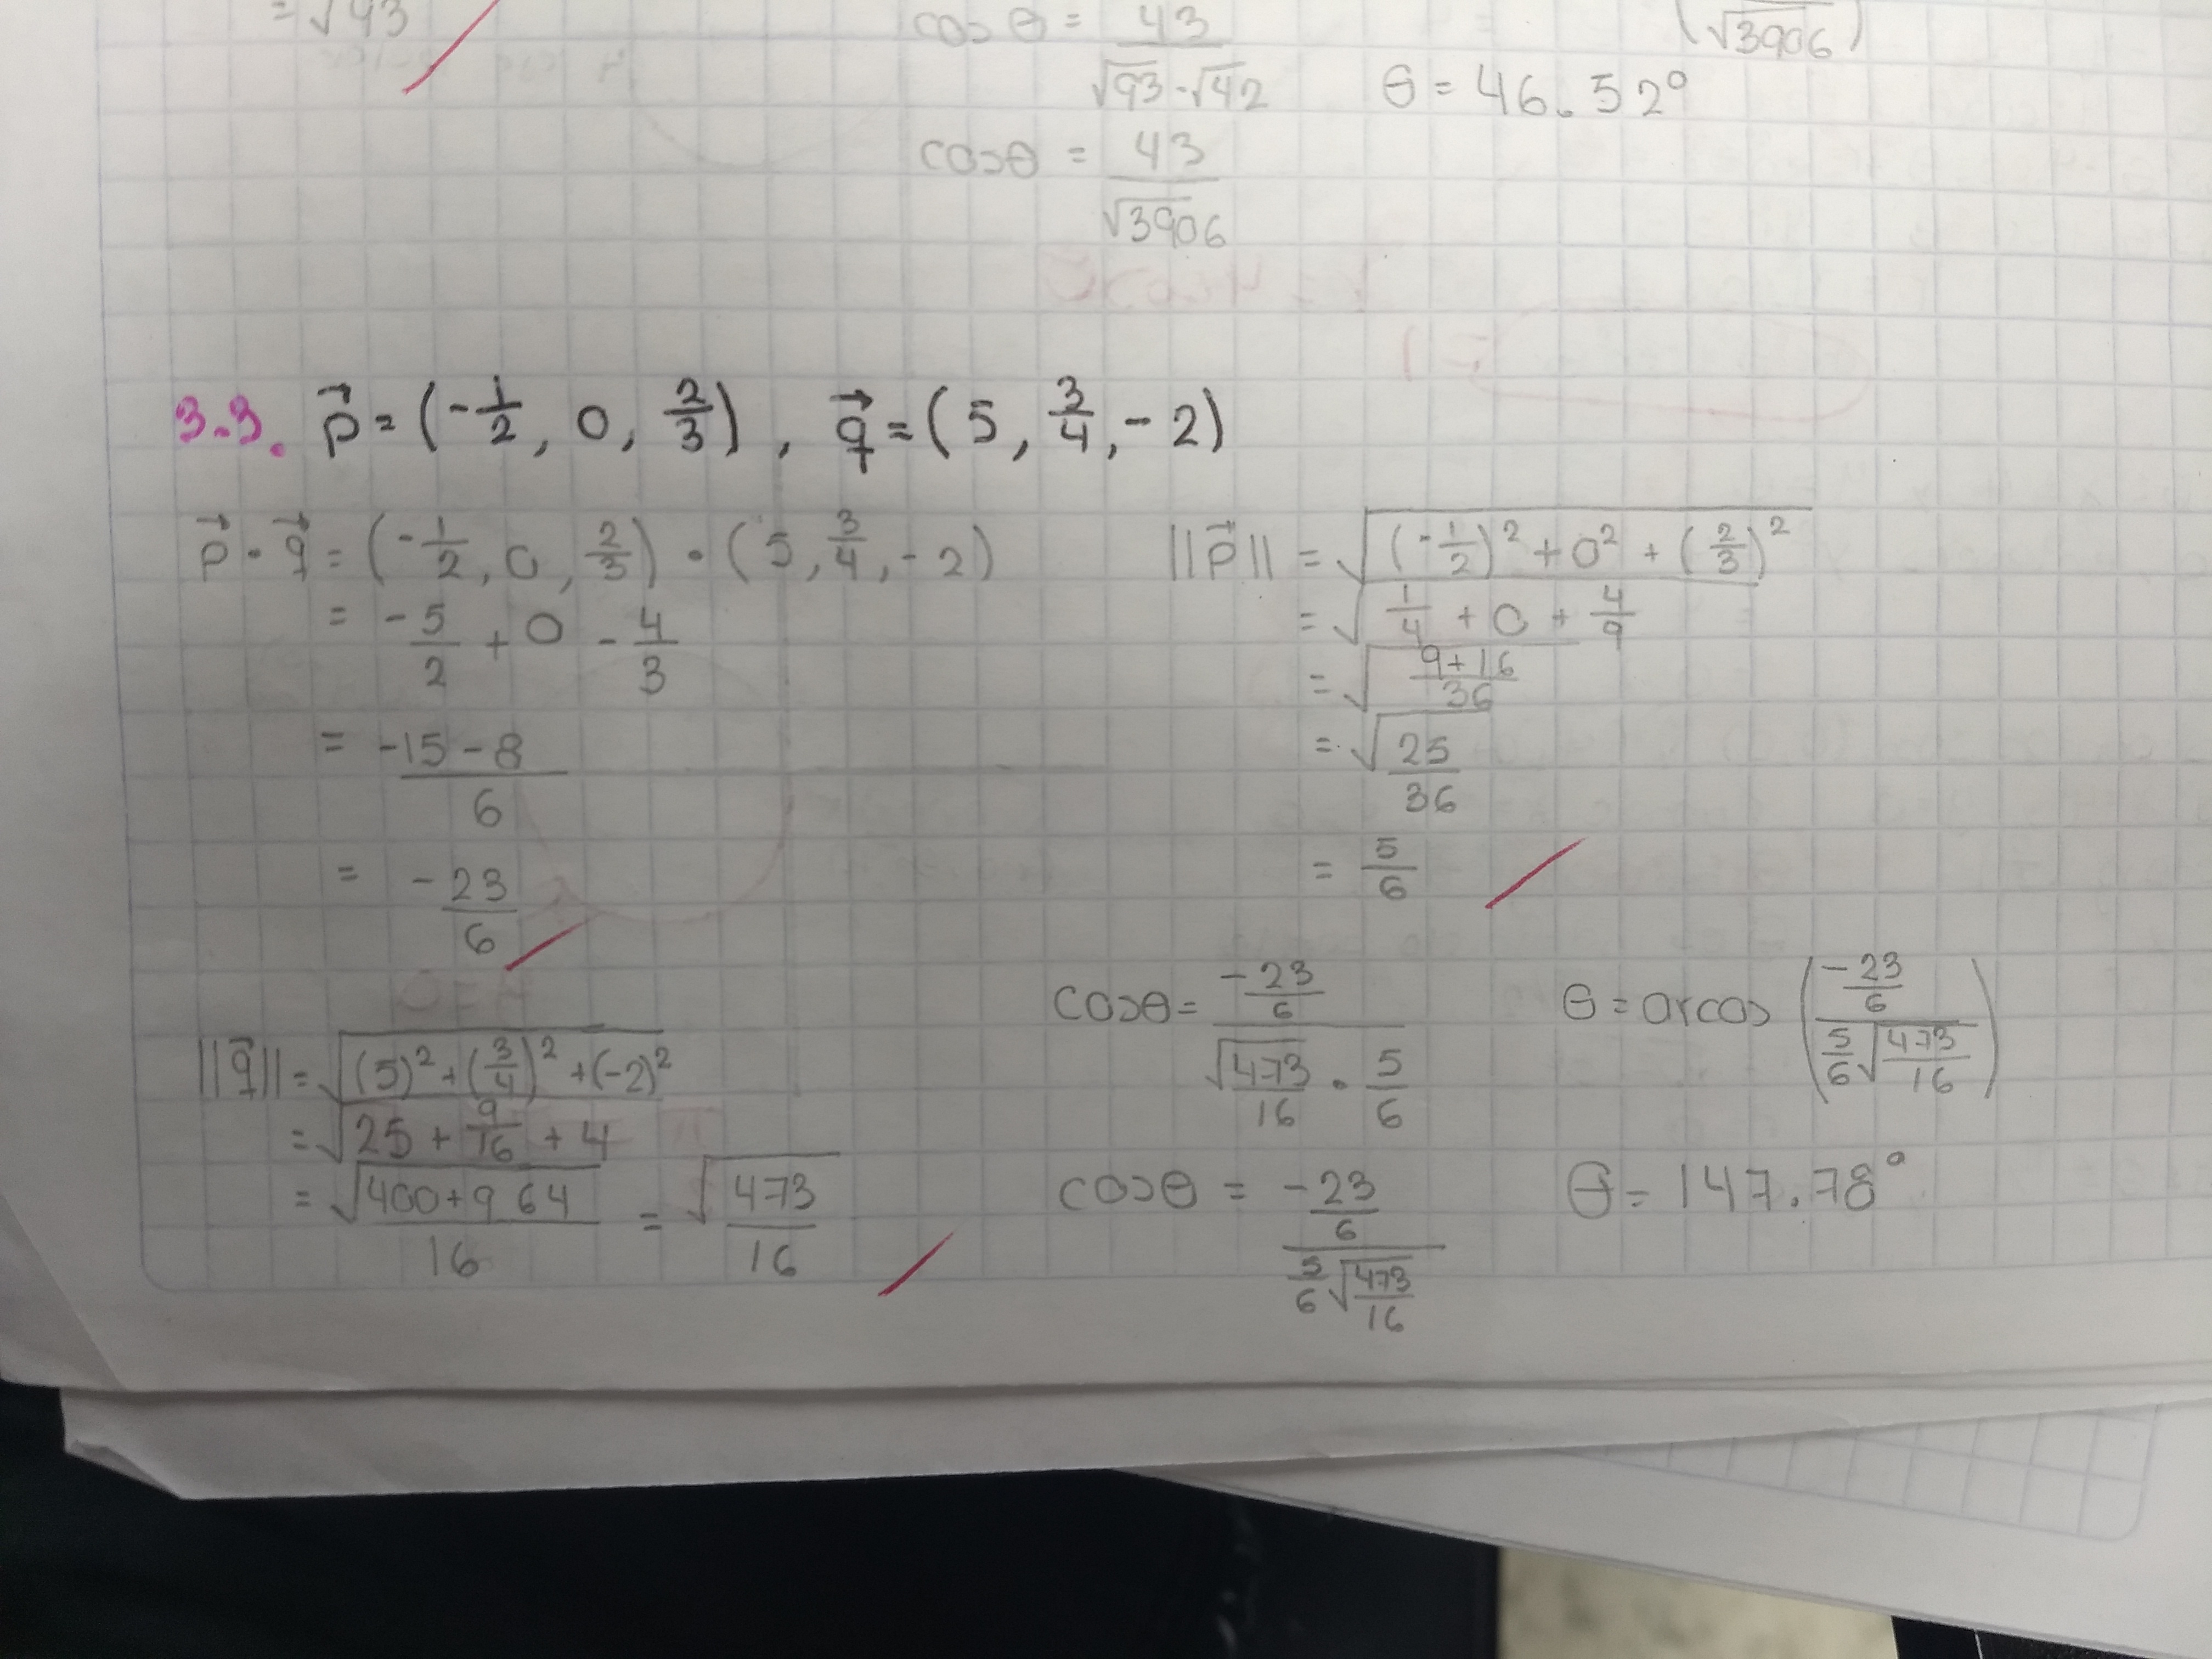 = √43
cos θ = 43 / √93 · √42
(√3906)
θ = 46.52°
cos θ = 43 / √3906
3.3. p⃗ = (-1/2, 0, 2/3), q⃗ = (5, 3/4, -2)
p⃗ · q⃗ = (-1/2, 0, 2/3) · (5, 3/4, -2)
= -5/2 + 0 - 4/3
= -15 - 8 / 6
= -23/6
||p⃗|| = √(-1/2)² + 0² + (2/3)²
= √1/4 + 0 + 4/9
= √9+16/36
= √25/36
= 5/6
||q⃗|| = √(5)² + (3/4)² + (-2)²
= √25 + 9/16 + 4
= √400+9 64/16 = √473/16
cos θ = -23/6 / √473/16 · 5/6
cos θ = -23/6 / 5/6 √473/16
θ = arcos (-23/6 / 5/6 √473/16)
θ = 147.78°